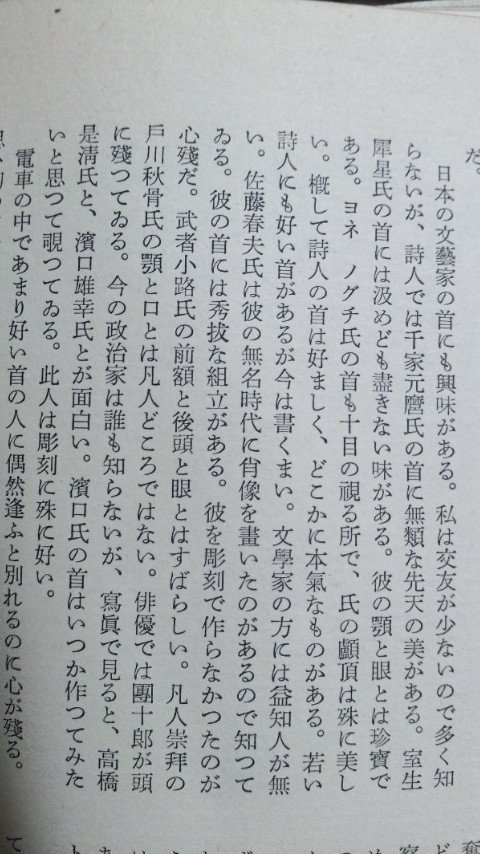 だ。
日本の文藝家の首にも興味がある。私は交友が少ないので多く知
らないが、詩人では千家元麿氏の首に無類な先天の美がある。室生
犀星氏の首には汲めども盡きない味がある。彼の顎と眼とは珍寶で
ある。ヨネ　ノグチ氏の首も十目の視る所で、氏の顱頂は殊に美し
い。槪して詩人の首は好ましく、どこかに本氣なものがある。若い
詩人にも好い首があるが今は書くまい。文學家の方には益知人が無
い。佐藤春夫氏は彼の無名時代に肖像を畫いたのがあるので知つて
ゐる。彼の首には秀拔な組立がある。彼を彫刻で作らなかつたのが
心殘だ。武者小路氏の前額と後頭と眼とはすばらしい。凡人崇拜の
戶川秋骨氏の顎と口とは凡人どころではない。俳優では團十郞が頭
に殘つてゐる。今の政治家は誰も知らないが、寫眞で見ると、高橋
是淸氏と、濱口雄幸氏とが面白い。濱口氏の首はいつか作つてみた
いと思つて覗つてゐる。此人は彫刻に殊に好い。
電車の中であまり好い首の人に偶然逢ふと別れるのに心が殘る。